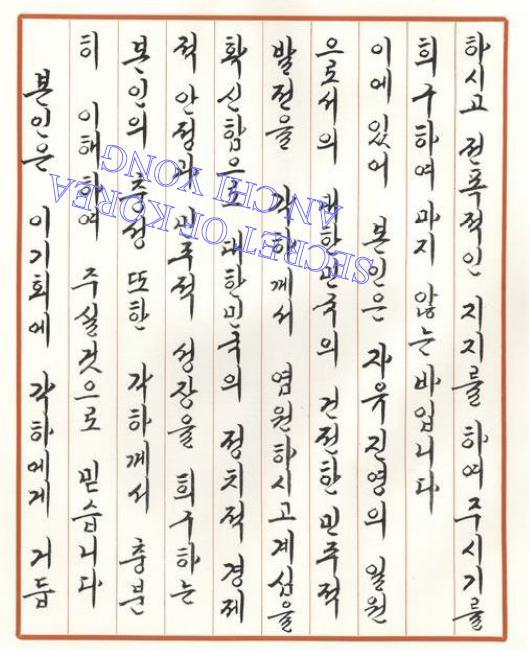 하시고 전폭적인 지지를 하여주시기를
희구하여 마지 않는바입니다
이에 있어 본인은 자유진영의 일원
으로서의 대한민국의 건전한 민주적
발전을 각하께서 염원하시고계심을
확신함으로 대한민국의 정치적 경제
적 안정과 민주적 성장을 희구하는
본인의 충성 또한 각하께서 충분
히 이해하여 주실것으로 믿습니다
본인은 이기회에 각하에게 거듭
SECRET OF KOREA
AN CHI YONG